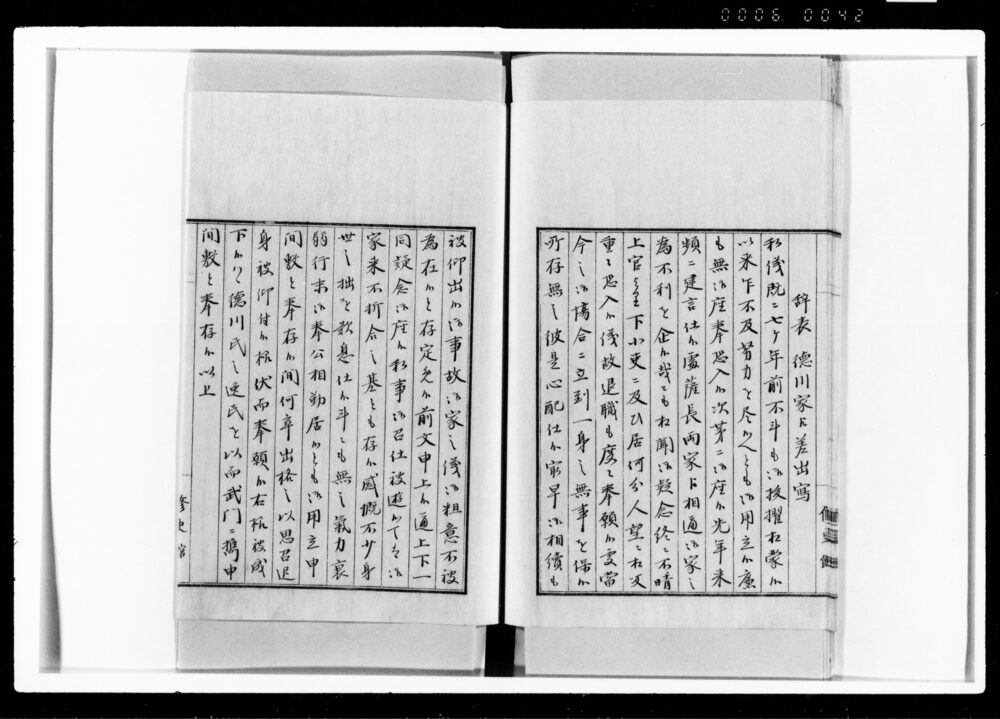 0006 0042
辞表 徳川家ヘ差出写
私儀既ニ七ケ年前不斗も御抜擢相蒙候
以来乍不及努力を尽候へとも御用立候廉
も無御座奉恐入候次第ニ御座候先年来
頻ニ建言仕候處薩長両家ヘ相通御家之
為不利を企候哉ニも相聞御疑念終ニ不晴
上官より下小吏ニ及ひ居何分人望ニ相支
重々恐入候儀故退職も度々奉願候処當
今之御場合ニ立到一身之無事を保候
所存無之彼是心配仕候家早御相續も
被仰出候御事故御家之儀御粗意不被
為在候と存定先前文申上候通上下一
同疑念御座候私事御召仕被遊候ては御
家来不折合之基とも存候感慨不少身
世之拙を歎息仕候斗ニも無之氣力衰
弱行末御奉公相勤居候とも御用立申
間敷と奉存候間何卒出格之以思召退
身被仰付候様伏而奉願候右様被成
下候ハヽ徳川氏之逸民を以而武門ニ携申
間敷と奉存候以上
修史館